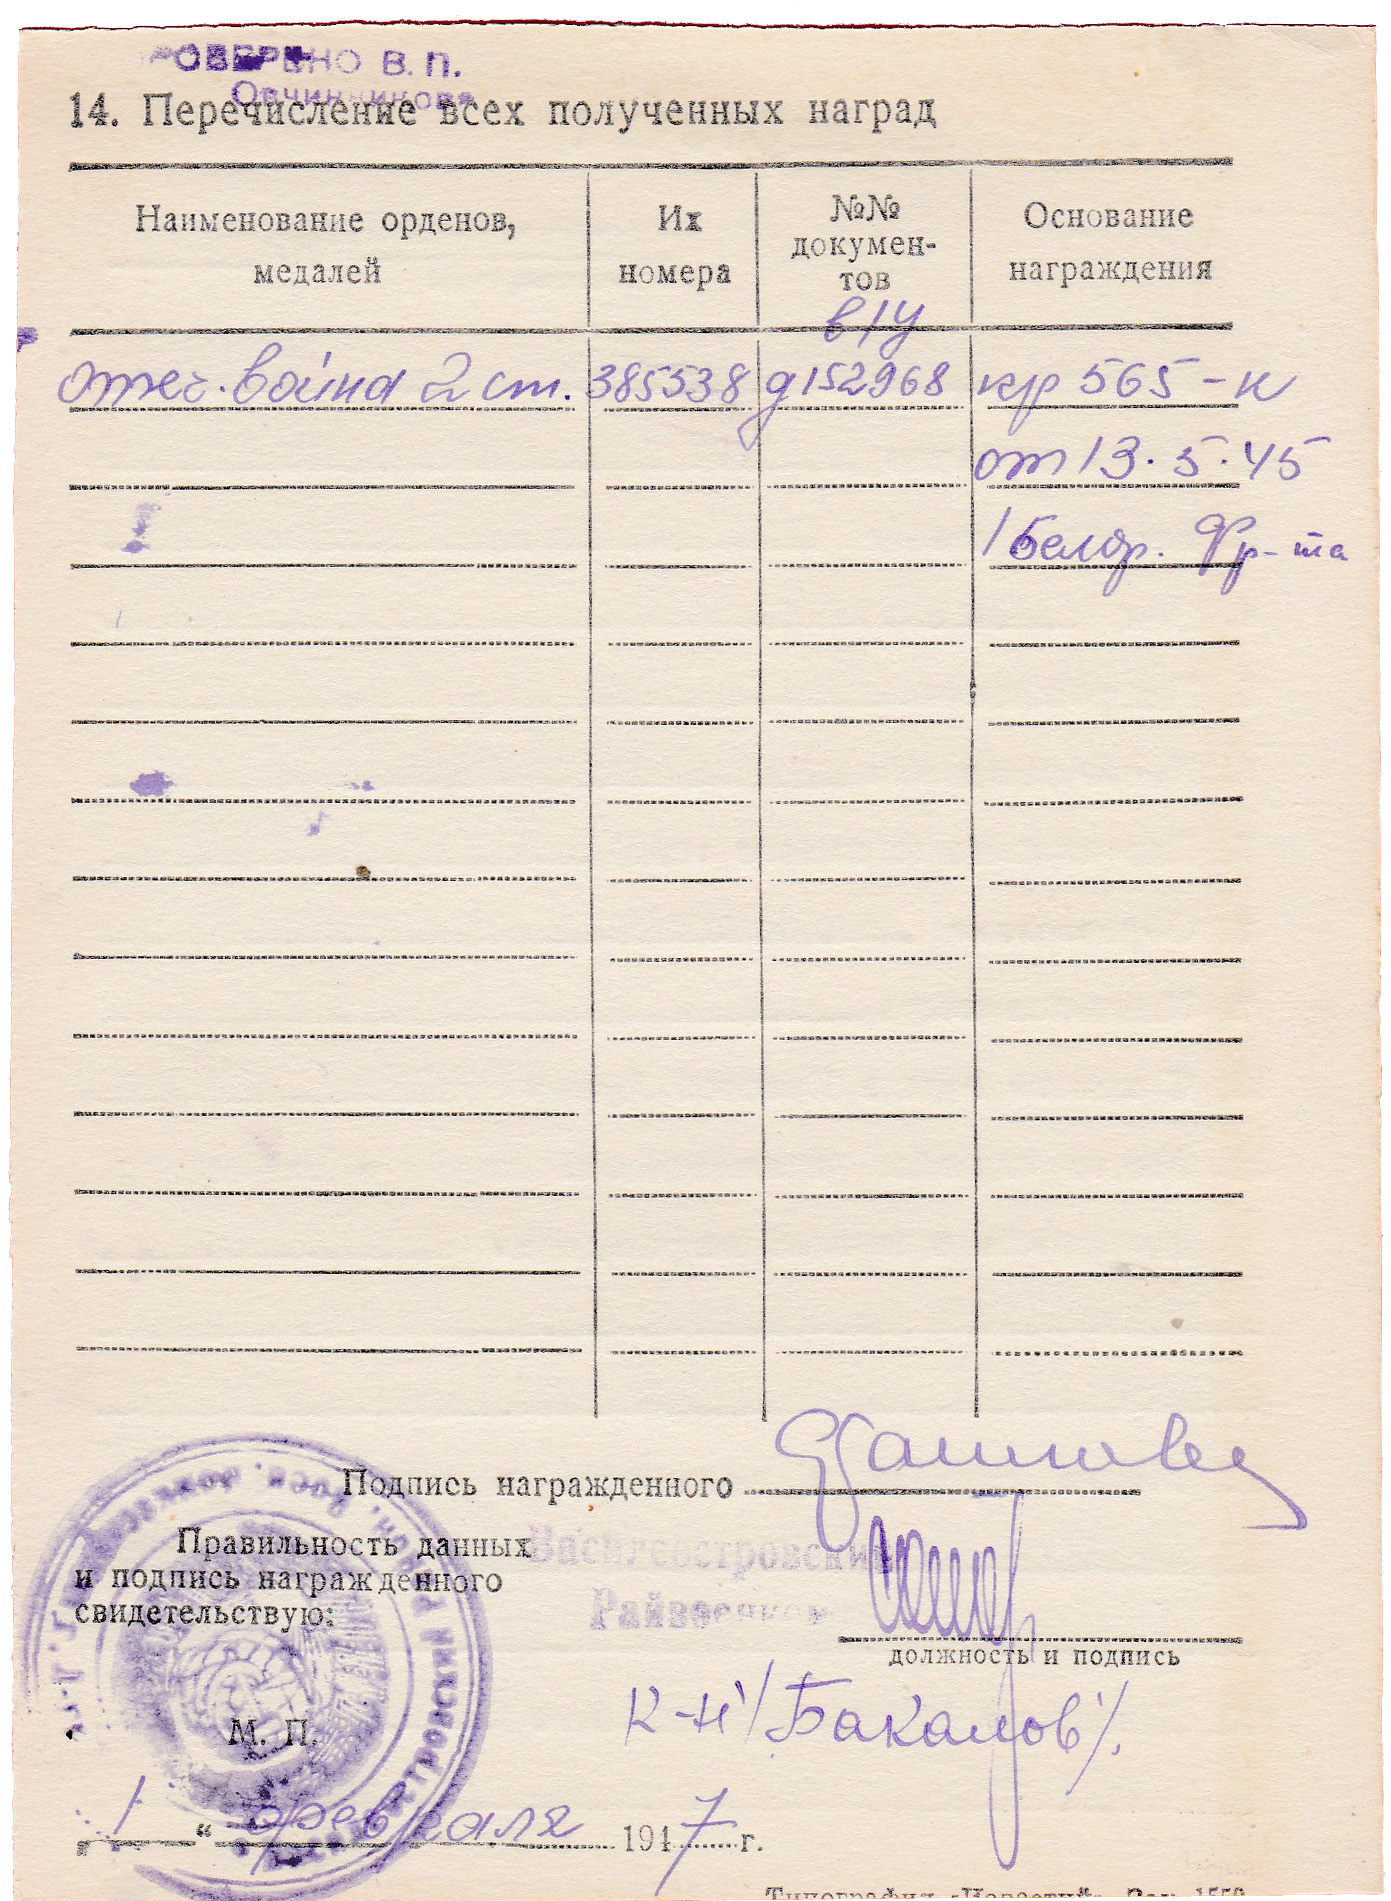 ОВЕРЕНО В. П.
Овчинникова
14. Перечисление всех полученных наград
Наименование орденов,
медалей
Их
номера
№№
докумен-
тов
в/у
Основание
награждения
отеч. война 2 ст. 385538 д152968 пр 565-н
от 13.5.45
1 Белор. Фр-та
Подпись награжденного
Правильность данных
и подпись награжденного
свидетельствую:
Василеостровский
Райвоенком
должность и подпись
К-н /Бакалов/.
М. П.
1 " февраля 1947 г.
Типография „Известий". Зак. 1558